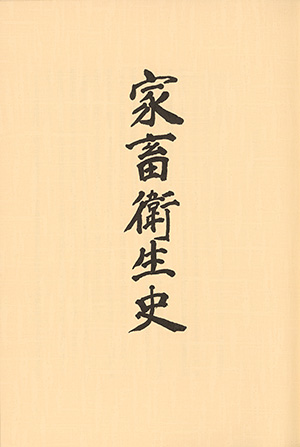 家畜衛生史